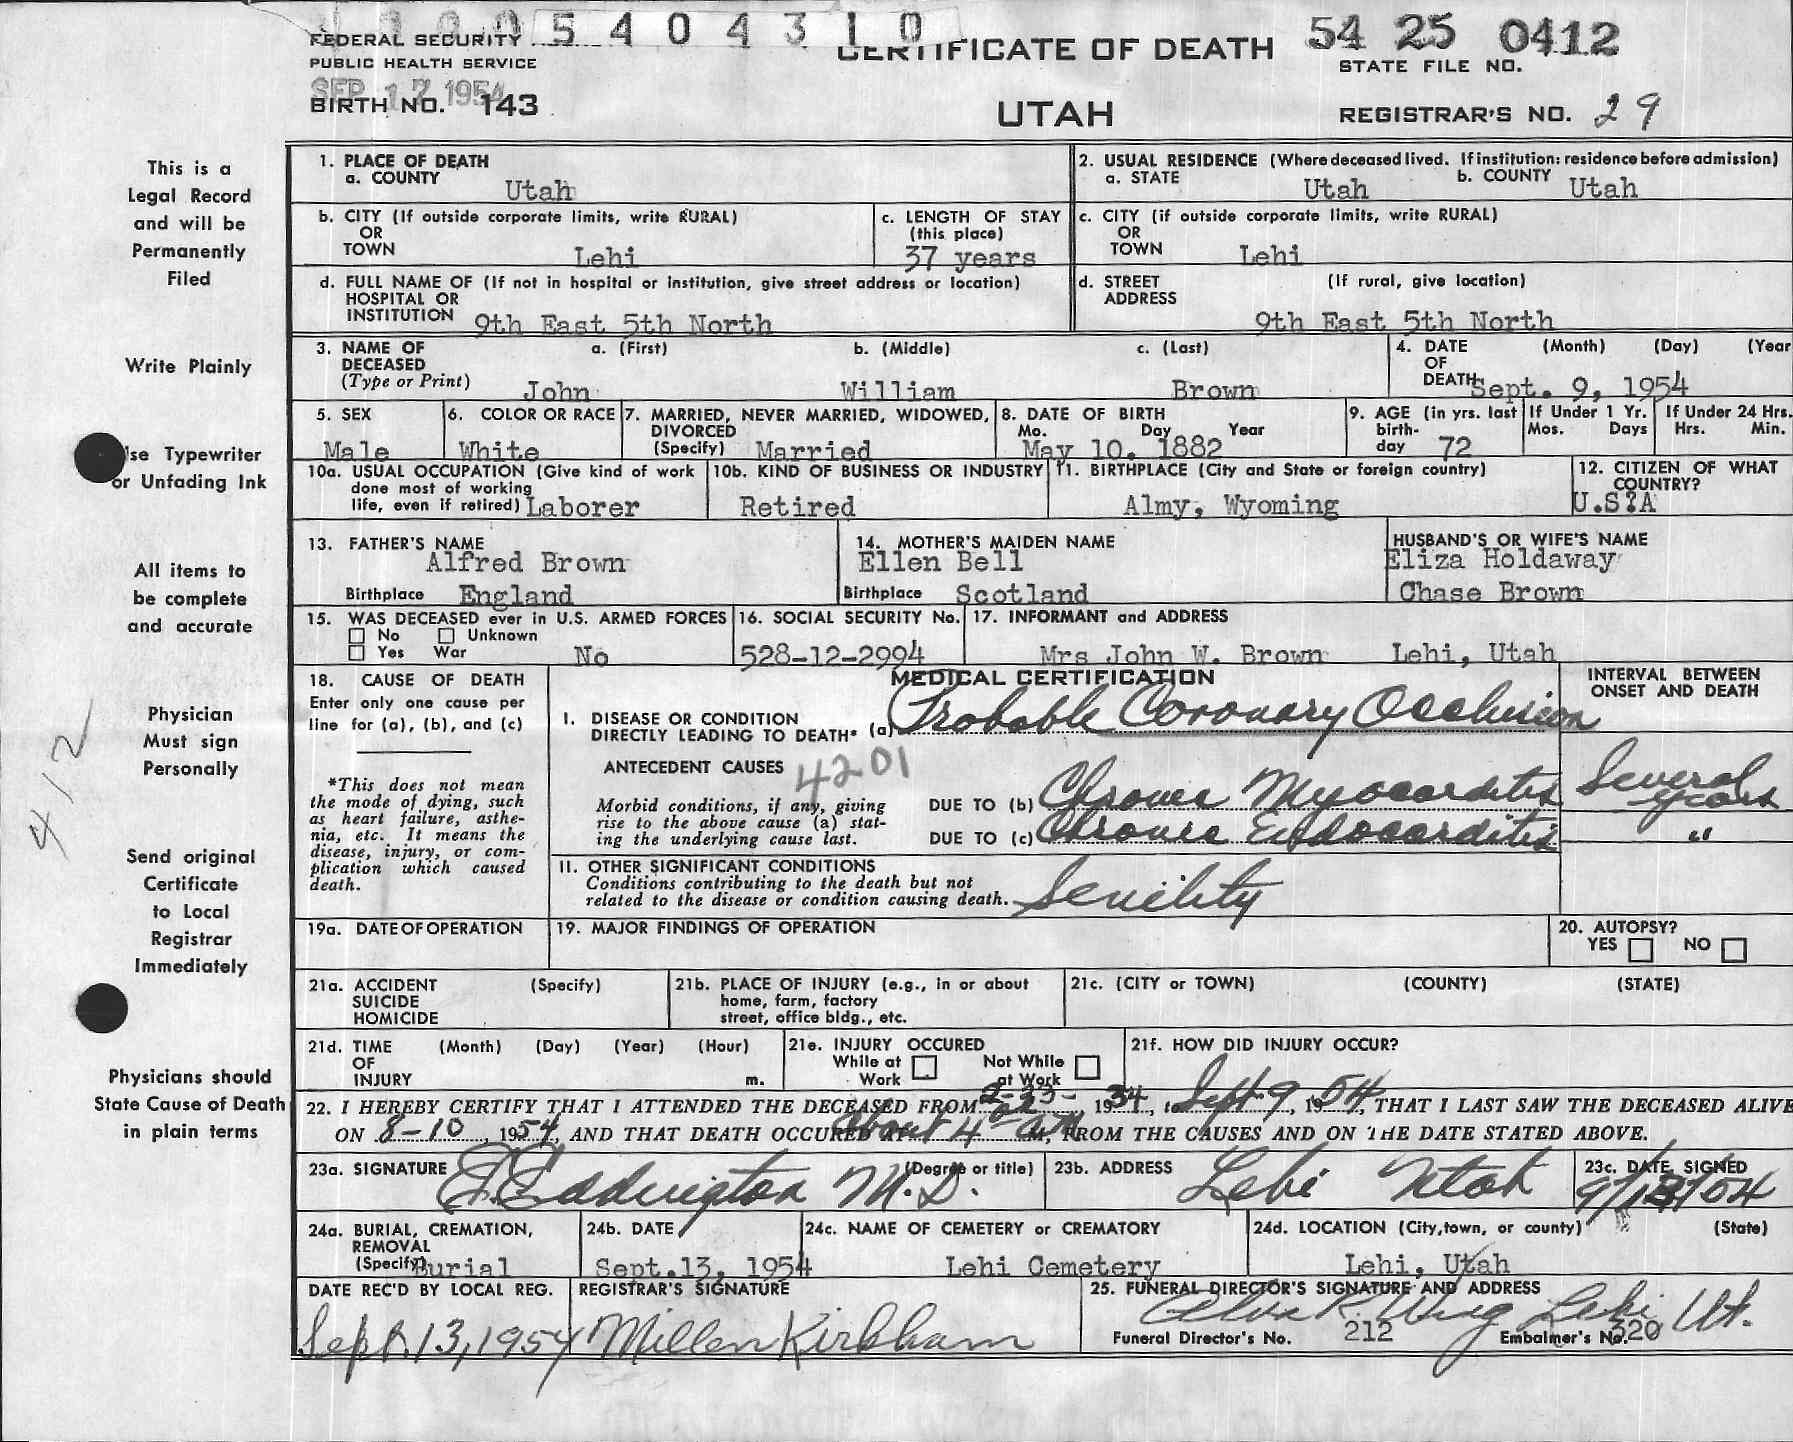 5 4 0 4 3 1 0
FEDERAL SECURITY
PUBLIC HEALTH SERVICE
SEP 17 1954
BIRTH NO. 143
CERTIFICATE OF DEATH
UTAH
54 25 0412
STATE FILE NO.
REGISTRAR'S NO. 29
This is a
Legal Record
and will be
Permanently
Filed
Write Plainly
Use Typewriter
or Unfading Ink
All items to
be complete
and accurate
Physician
Must sign
Personally
412
Send original
Certificate
to Local
Registrar
Immediately
Physicians should
State Cause of Death
in plain terms
1. PLACE OF DEATH
a. COUNTY Utah
2. USUAL RESIDENCE (Where deceased lived. If institution: residence before admission)
a. STATE Utah b. COUNTY Utah
b. CITY (If outside corporate limits, write RURAL)
OR
TOWN Lehi
c. LENGTH OF STAY
(this place)
37 years
c. CITY (if outside corporate limits, write RURAL)
OR
TOWN Lehi
d. FULL NAME OF (If not in hospital or institution, give street address or location)
HOSPITAL OR
INSTITUTION 9th East 5th North
d. STREET (If rural, give location)
ADDRESS
9th East 5th North
3. NAME OF DECEASED
(Type or Print)
a. (First) b. (Middle) c. (Last)
John William Brown
4. DATE (Month) (Day) (Year
OF
DEATH Sept. 9, 1954
5. SEX
Male
6. COLOR OR RACE
White
7. MARRIED, NEVER MARRIED, WIDOWED,
DIVORCED
(Specify) Married
8. DATE OF BIRTH
Mo. Day Year
May 10. 1882
9. AGE (in yrs. last
birth-
day 72
If Under 1 Yr.
Mos. Days
If Under 24 Hrs.
Hrs. Min.
10a. USUAL OCCUPATION (Give kind of work
done most of working
life, even if retired) Laborer
10b. KIND OF BUSINESS OR INDUSTRY
Retired
11. BIRTHPLACE (City and State or foreign country)
Almy, Wyoming
12. CITIZEN OF WHAT
COUNTRY?
U.S?A
13. FATHER'S NAME
Alfred Brown
Birthplace England
14. MOTHER'S MAIDEN NAME
Ellen Bell
Birthplace Scotland
HUSBAND'S OR WIFE'S NAME
Eliza Holdaway
Chase Brown
15. WAS DECEASED ever in U.S. ARMED FORCES
No Unknown
Yes War No
16. SOCIAL SECURITY No.
528-12-2994
17. INFORMANT and ADDRESS
Mrs John W. Brown Lehi, Utah
18. CAUSE OF DEATH
Enter only one cause per
line for (a), (b), and (c)
*This does not mean
the mode of dying, such
as heart failure, asthe-
nia, etc. It means the
disease, injury, or com-
plication which caused
death.
MEDICAL CERTIFICATION
INTERVAL BETWEEN
ONSET AND DEATH
I. DISEASE OR CONDITION
DIRECTLY LEADING TO DEATH* (a) Probable Coronary Occlusion
ANTECEDENT CAUSES 4201
Morbid conditions, if any, giving
rise to the above cause (a) stat-
ing the underlying cause last.
DUE TO (b) Chronic Myocarditis Several years
DUE TO (c) Chronic Endocarditis "
II. OTHER SIGNIFICANT CONDITIONS
Conditions contributing to the death but not
related to the disease or condition causing death. Senility
19a. DATE OF OPERATION
19. MAJOR FINDINGS OF OPERATION
20. AUTOPSY?
YES NO
21a. ACCIDENT (Specify)
SUICIDE
HOMICIDE
21b. PLACE OF INJURY (e.g., in or about
home, farm, factory
street, office bldg., etc.
21c. (CITY or TOWN) (COUNTY) (STATE)
21d. TIME (Month) (Day) (Year) (Hour)
OF
INJURY m.
21e. INJURY OCCURED
While at Work
Not While at Work
21f. HOW DID INJURY OCCUR?
22. I HEREBY CERTIFY THAT I ATTENDED THE DECEASED FROM 2-23- 1934, to Sept 9, 1954, THAT I LAST SAW THE DECEASED ALIVE
ON 8-10, 1954, AND THAT DEATH OCCURED AT About 4 a M, FROM THE CAUSES AND ON THE DATE STATED ABOVE.
23a. SIGNATURE (Degree or title)
E. Eddington M.D.
23b. ADDRESS
Lehi Utah
23c. DATE SIGNED
9/13/54
24a. BURIAL, CREMATION,
REMOVAL
(Specify) Burial
24b. DATE
Sept.13, 1954
24c. NAME OF CEMETERY or CREMATORY
Lehi Cemetery
24d. LOCATION (City, town, or county) (State)
Lehi, Utah
DATE REC'D BY LOCAL REG.
Sept. 13, 1954
REGISTRAR'S SIGNATURE
Millen Kirkham
25. FUNERAL DIRECTOR'S SIGNATURE AND ADDRESS
Alva R. Wing Lehi Ut.
Funeral Director's No. 212 Embalmer's No. 320